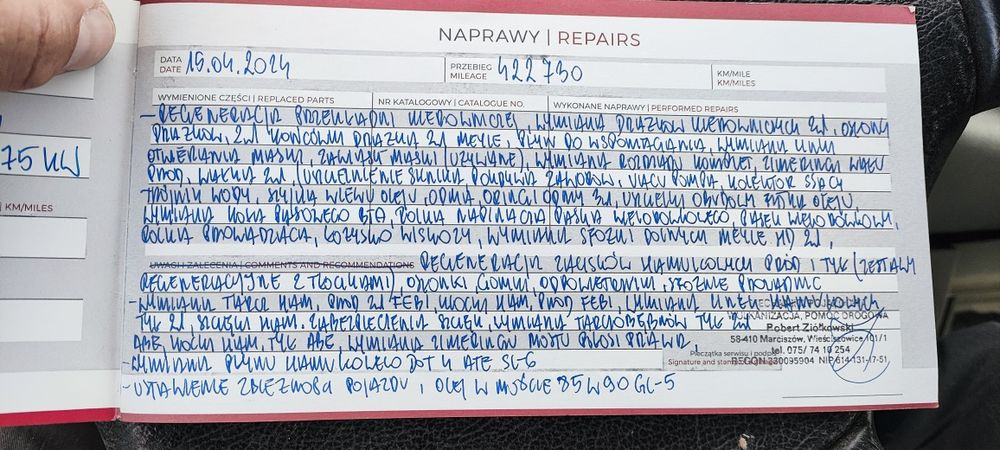 NAPRAWY | REPAIRS
DATA 15.04.2024 PRZEBIEG 422730 KM/MILE
DATE MILEAGE KM/MILES
WYMIENIONE CZĘŚCI | REPLACED PARTS NR KATALOGOWY | CATALOGUE NO. WYKONANE NAPRAWY | PERFORMED REPAIRS
- REGENERACJA PRZEKŁADNI KIEROWNICZEJ, WYMIANA DRĄŻKÓW KIEROWNICZYCH 2X, OSŁONY
DRĄŻKÓW, 2X KOŃCÓWKI DRĄŻKA 2X MEYLE, PŁYN DO WSPOMAGANIA, WYMIANA LINKI
OTWIERANIA MASKI, ZAMKA MASKI (UŻYWANE), WYMIANA ROZRZĄDU KOMPLET, ZIMERINGU WAŁU
PRZÓD, WAŁKA 2X, USZCZELNIENIE SILNIKA POKRYWA ZAWORÓW, VACU POMPA, KOLEKTOR SSĄCY
TRÓJNIK WODY, WLEWU OLEJU, ODMA, ORINGI ODMY 3X, USZCZELKI OBUDOWY FILTRA OLEJU,
WYMIANA KOŁA PASOWEGO, ROLKA NAPINACZA PASKA WIELOROWKOWEGO, PASEK WIELOROWKOWY,
ROLKA PROWADZĄCA, ŁOŻYSKO WISKOZY, WYMIANA SWORZNI DOLNYCH MEYLE HD 2X,
UWAGI I ZALECENIA | COMMENTS AND RECOMMENDATIONS REGENERACJA ZACISKÓW HAMULCOWYCH PRZÓD I TYŁ (ZESTAWY
REGENERACYJNE Z TŁOCZKAMI), OSŁONKI GUMKI, ODPOWIETRZNIKI, PROWADNIC
- WYMIANA TARCZ HAM. PRZÓD 2X FEBI, KLOCKI HAM. PRZÓD FEBI, WYMIANA LINEK HAMULCOWYCH
TYŁ 2X, SZCZĘKI HAM. ZABEZPIECZENIA SZCZĘK, WYMIANA TARCZOBĘBNÓW TYŁ 2X
ABE, KLOCKI HAM. TYŁ ABE, WYMIANA ZIMERINGU MOSTU PÓŁOSI PRAWA,
- WYMIANA PŁYNU HAMULCOWEGO DOT 4 ATE SL-6
- USTAWIENIE ZBIEŻNOŚCI POJAZDU, OLEJ W MOŚCIE 85W90 GL-5
WULKANIZACJA, POMOC DROGOWA
Robert Ziółkowski
58-410 Marciszów, Wieściszowice 101/1
tel. 075/ 74 10 254
Pieczątka serwisu i podpis
Signature and stamp
75 KW
KM/MILES